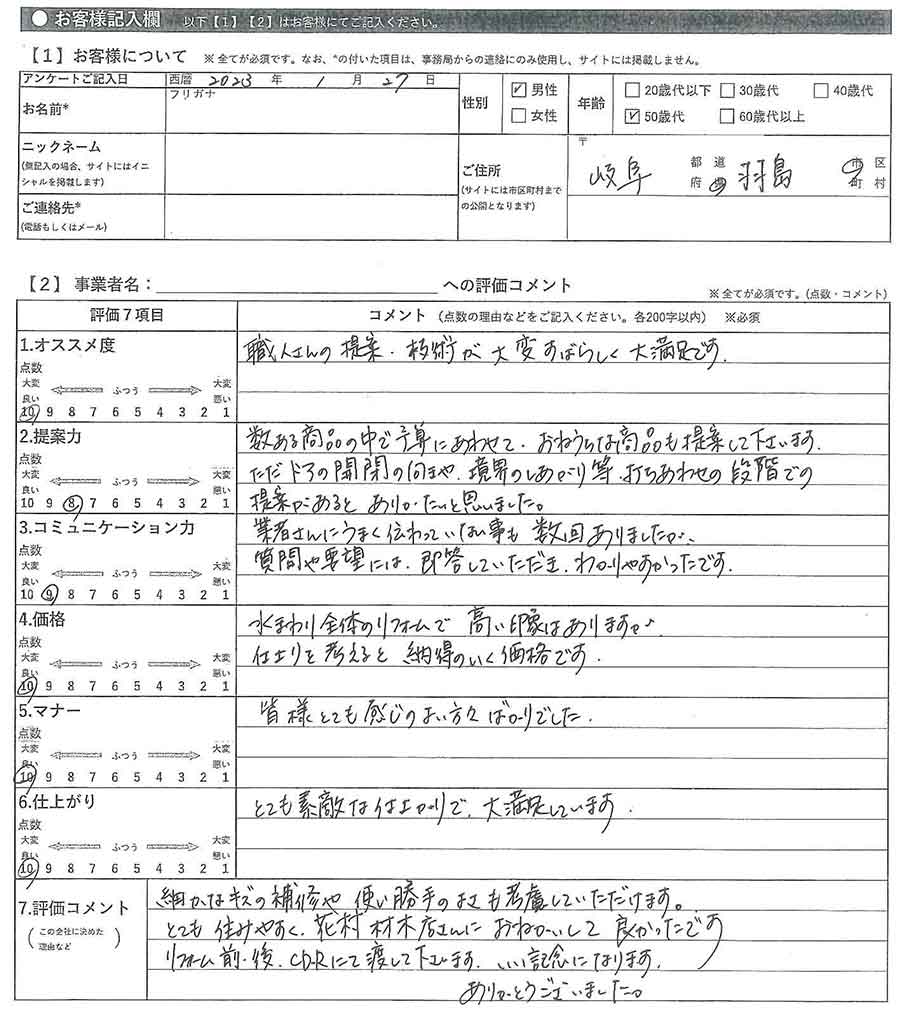 ● お客様記入欄 以下【1】【2】はお客様にてご記入ください。
【1】お客様について ※ 全てが必須です。なお、*の付いた項目は、事務局からの連絡にのみ使用し、サイトには掲載しません。
アンケートご記入日 西暦 2023 年 1 月 27 日
お名前* フリガナ
性別 ☑ 男性 □ 女性
年齢 □ 20歳代以下 □ 30歳代 □ 40歳代
☑ 50歳代 □ 60歳代以上
ニックネーム
(無記入の場合、サイトにはイニ
シャルを掲載します)
ご連絡先*
(電話もしくはメール)
ご住所
(サイトには市区町村まで
の公開となります)
〒
岐阜 都道府県 羽島 市区町村
【2】事業者名: への評価コメント
※ 全てが必須です。(点数・コメント)
評価7項目 コメント (点数の理由などをご記入ください。各200字以内) ※必須
1.オススメ度
点数
大変良い ふつう 大変悪い
10 9 8 7 6 5 4 3 2 1
職人さんの提案・技術が大変すばらしく大満足です.
2.提案力
点数
大変良い ふつう 大変悪い
10 9 8 7 6 5 4 3 2 1
数ある商品の中で予算にあわせて、おねうちな商品も提案して下さいます.
ただドアの開閉の向きや、境界のしあがり等、打ちあわせの段階での
提案があるとありがたいと思いました。
3.コミュニケーション力
点数
大変良い ふつう 大変悪い
10 9 8 7 6 5 4 3 2 1
業者さんにうまく伝わっていない事も数回ありましたが、
質問や要望には、即答していただき、わかりやすかったです.
4.価格
点数
大変良い ふつう 大変悪い
10 9 8 7 6 5 4 3 2 1
水まわり全体のリフォームで高い印象はありますが、
仕上りを考えると納得のいく価格です.
5.マナー
点数
大変良い ふつう 大変悪い
10 9 8 7 6 5 4 3 2 1
皆様とても感じのよい方々ばかりでした.
6.仕上がり
点数
大変良い ふつう 大変悪い
10 9 8 7 6 5 4 3 2 1
とても素敵な仕上がりで、大満足しています.
7.評価コメント
(この会社に決めた
理由など)
細かなキズの補修や使い勝手のよさも考慮していただけます。
とても住みやすく、花村材木店さんにおねがいして良かったです
リフォーム前・後、CD-Rにて渡して下さいます、いい記念になります.
ありがとうございました。